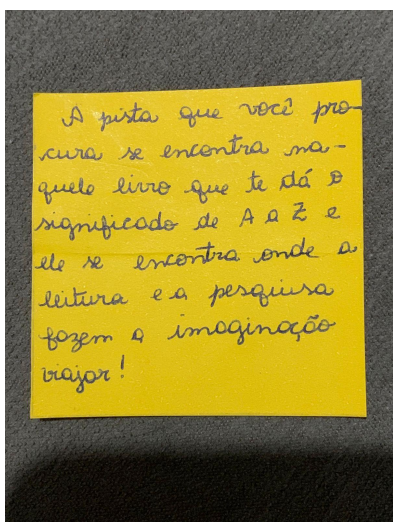 A pista que você pro-
cura se encontra na-
quele livro que te dá o
significado de A a Z e
ele se encontra onde a
leitura e a pesquisa
fazem a imaginação
viajar!